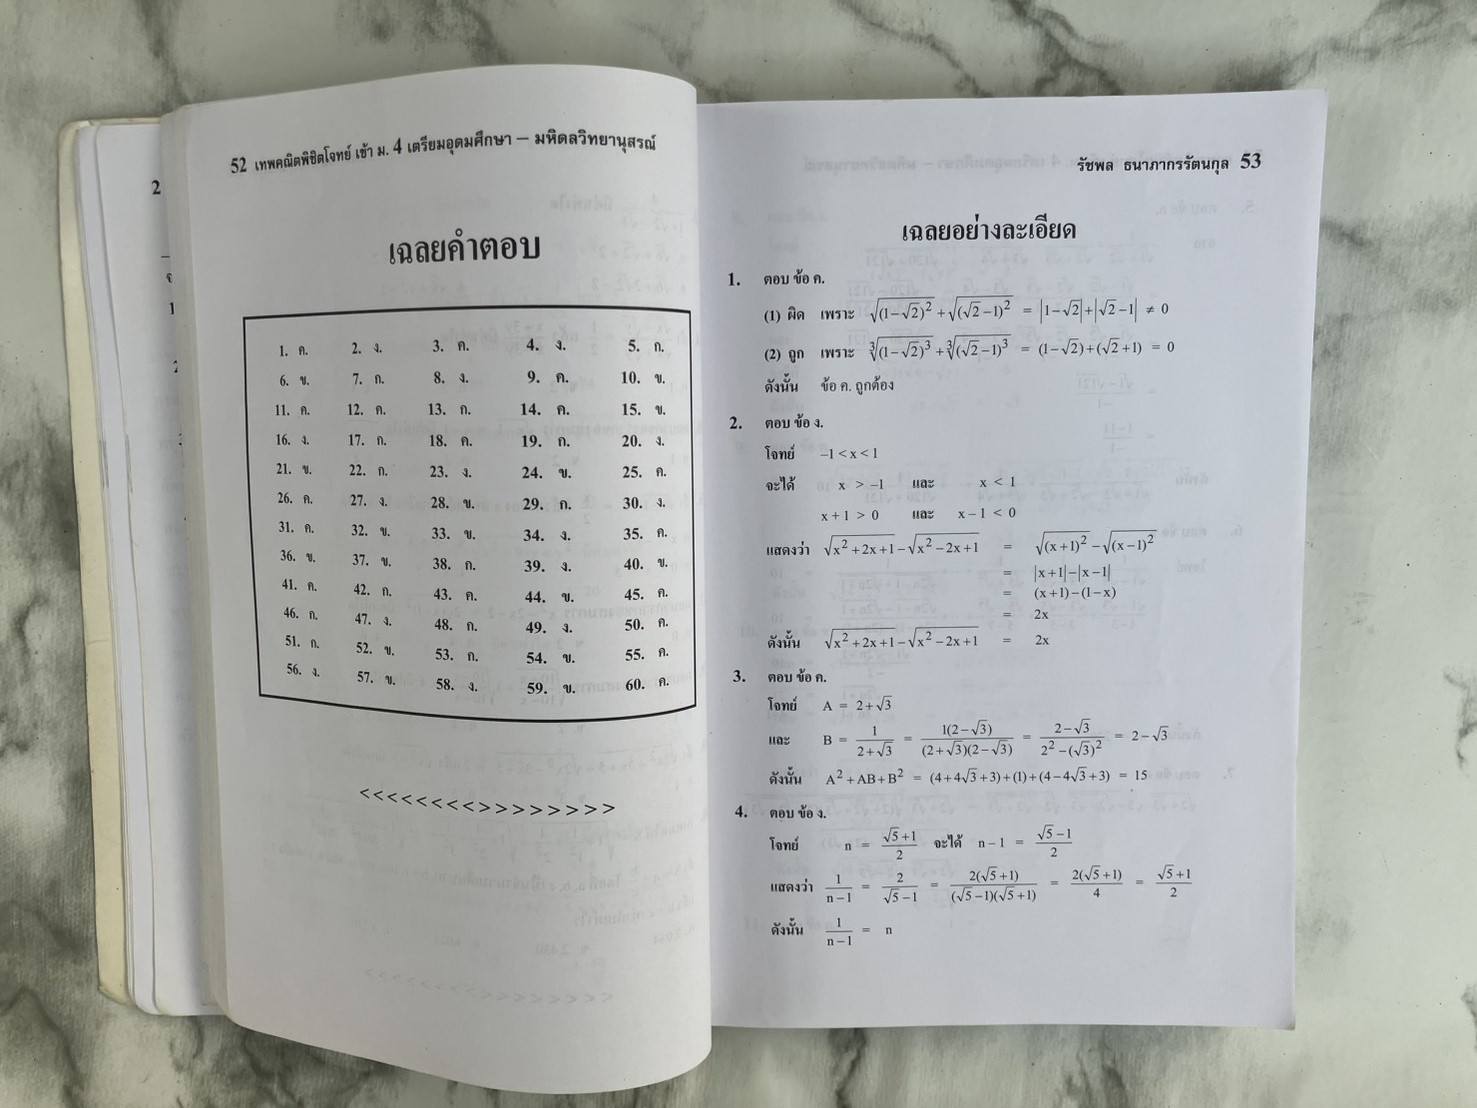 52 เทพคณิตพิชิตโจทย์ เข้า ม. 4 เตรียมอุดมศึกษา – มหิดลวิทยานุสรณ์
เฉลยคำตอบ
1. ค. 2. ง. 3. ค. 4. ง. 5. ก.
6. ข. 7. ก. 8. ง. 9. ค. 10. ข.
11. ค. 12. ค. 13. ก. 14. ค. 15. ข.
16. ง. 17. ก. 18. ค. 19. ก. 20. ง.
21. ข. 22. ก. 23. ง. 24. ข. 25. ค.
26. ค. 27. ง. 28. ข. 29. ก. 30. ง.
31. ค. 32. ข. 33. ข. 34. ง. 35. ค.
36. ข. 37. ข. 38. ก. 39. ง. 40. ข.
41. ค. 42. ก. 43. ค. 44. ข. 45. ค.
46. ก. 47. ง. 48. ก. 49. ง. 50. ค.
51. ก. 52. ข. 53. ก. 54. ข. 55. ค.
56. ง. 57. ข. 58. ง. 59. ข. 60. ค.
<<<<<<<<>>>>>>>>>>
รัชพล ธนาภากรรัตนกุล 53
เฉลยอย่างละเอียด
1. ตอบ ข้อ ค.
(1) ผิด เพราะ √(1−√2)² + √(√2−1)² = |1−√2|+|√2−1| ≠ 0
(2) ถูก เพราะ ∛(1−√2)³ + ∛(√2−1)³ = (1−√2)+(√2+1) = 0
ดังนั้น ข้อ ค. ถูกต้อง
2. ตอบ ข้อ ง.
โจทย์ −1 < x < 1
จะได้ x > −1 และ x < 1
x+1 > 0 และ x−1 < 0
แสดงว่า √(x²+2x+1) − √(x²−2x+1) = √(x+1)² − √(x−1)²
= |x+1|−|x−1|
= (x+1)−(1−x)
= 2x
ดังนั้น √(x²+2x+1) − √(x²−2x+1) = 2x
3. ตอบ ข้อ ค.
โจทย์ A = 2+√3
และ B = 1/(2+√3) = 1(2−√3)/((2+√3)(2−√3)) = (2−√3)/(2²−(√3)²) = 2−√3
ดังนั้น A²+AB+B² = (4+4√3+3)+(1)+(4−4√3+3) = 15
4. ตอบ ข้อ ง.
โจทย์ n = (√5+1)/2 จะได้ n−1 = (√5−1)/2
แสดงว่า 1/(n−1) = 2/(√5−1) = 2(√5+1)/((√5−1)(√5+1)) = 2(√5+1)/4 = (√5+1)/2
ดังนั้น 1/(n−1) = n